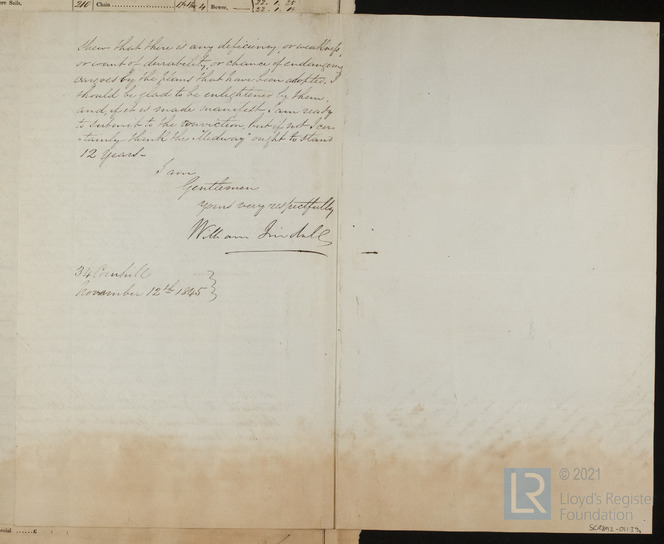 ore Sails,
210 Chain
Bower,
shew that there is any deficiency, or weakness,
or want of durability, or chance of endangering
cargoes by the plans that have been adopted, I
should be glad to be enlightened by them,
and, if it is made manifest I am ready
to submit to the conviction, but if not I cer
tainly think the "Medway" ought to stand
12 Years –
I am
Gentlemen
Yours very respectfully
William Tindall
34 Cornhill
November 12th 1845
© 2021
LR
Lloyd's Register
Foundation